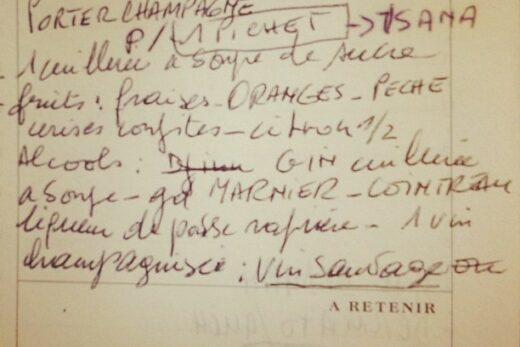 PORTER CHAMPAGNE
P/ 1 PICHET → SANA
- 1 cuillerée à Soupe de Sucre
- fruits : fraises - ORANGES - PECHE
cerises confites - citron 1/2
Alcools : GIN cuillerée
a Soupe - gd MARNIER - COINTREAU
liqueur de passe rapière - 1 vin
champagnisé : Vin Sauvage ou
A RETENIR